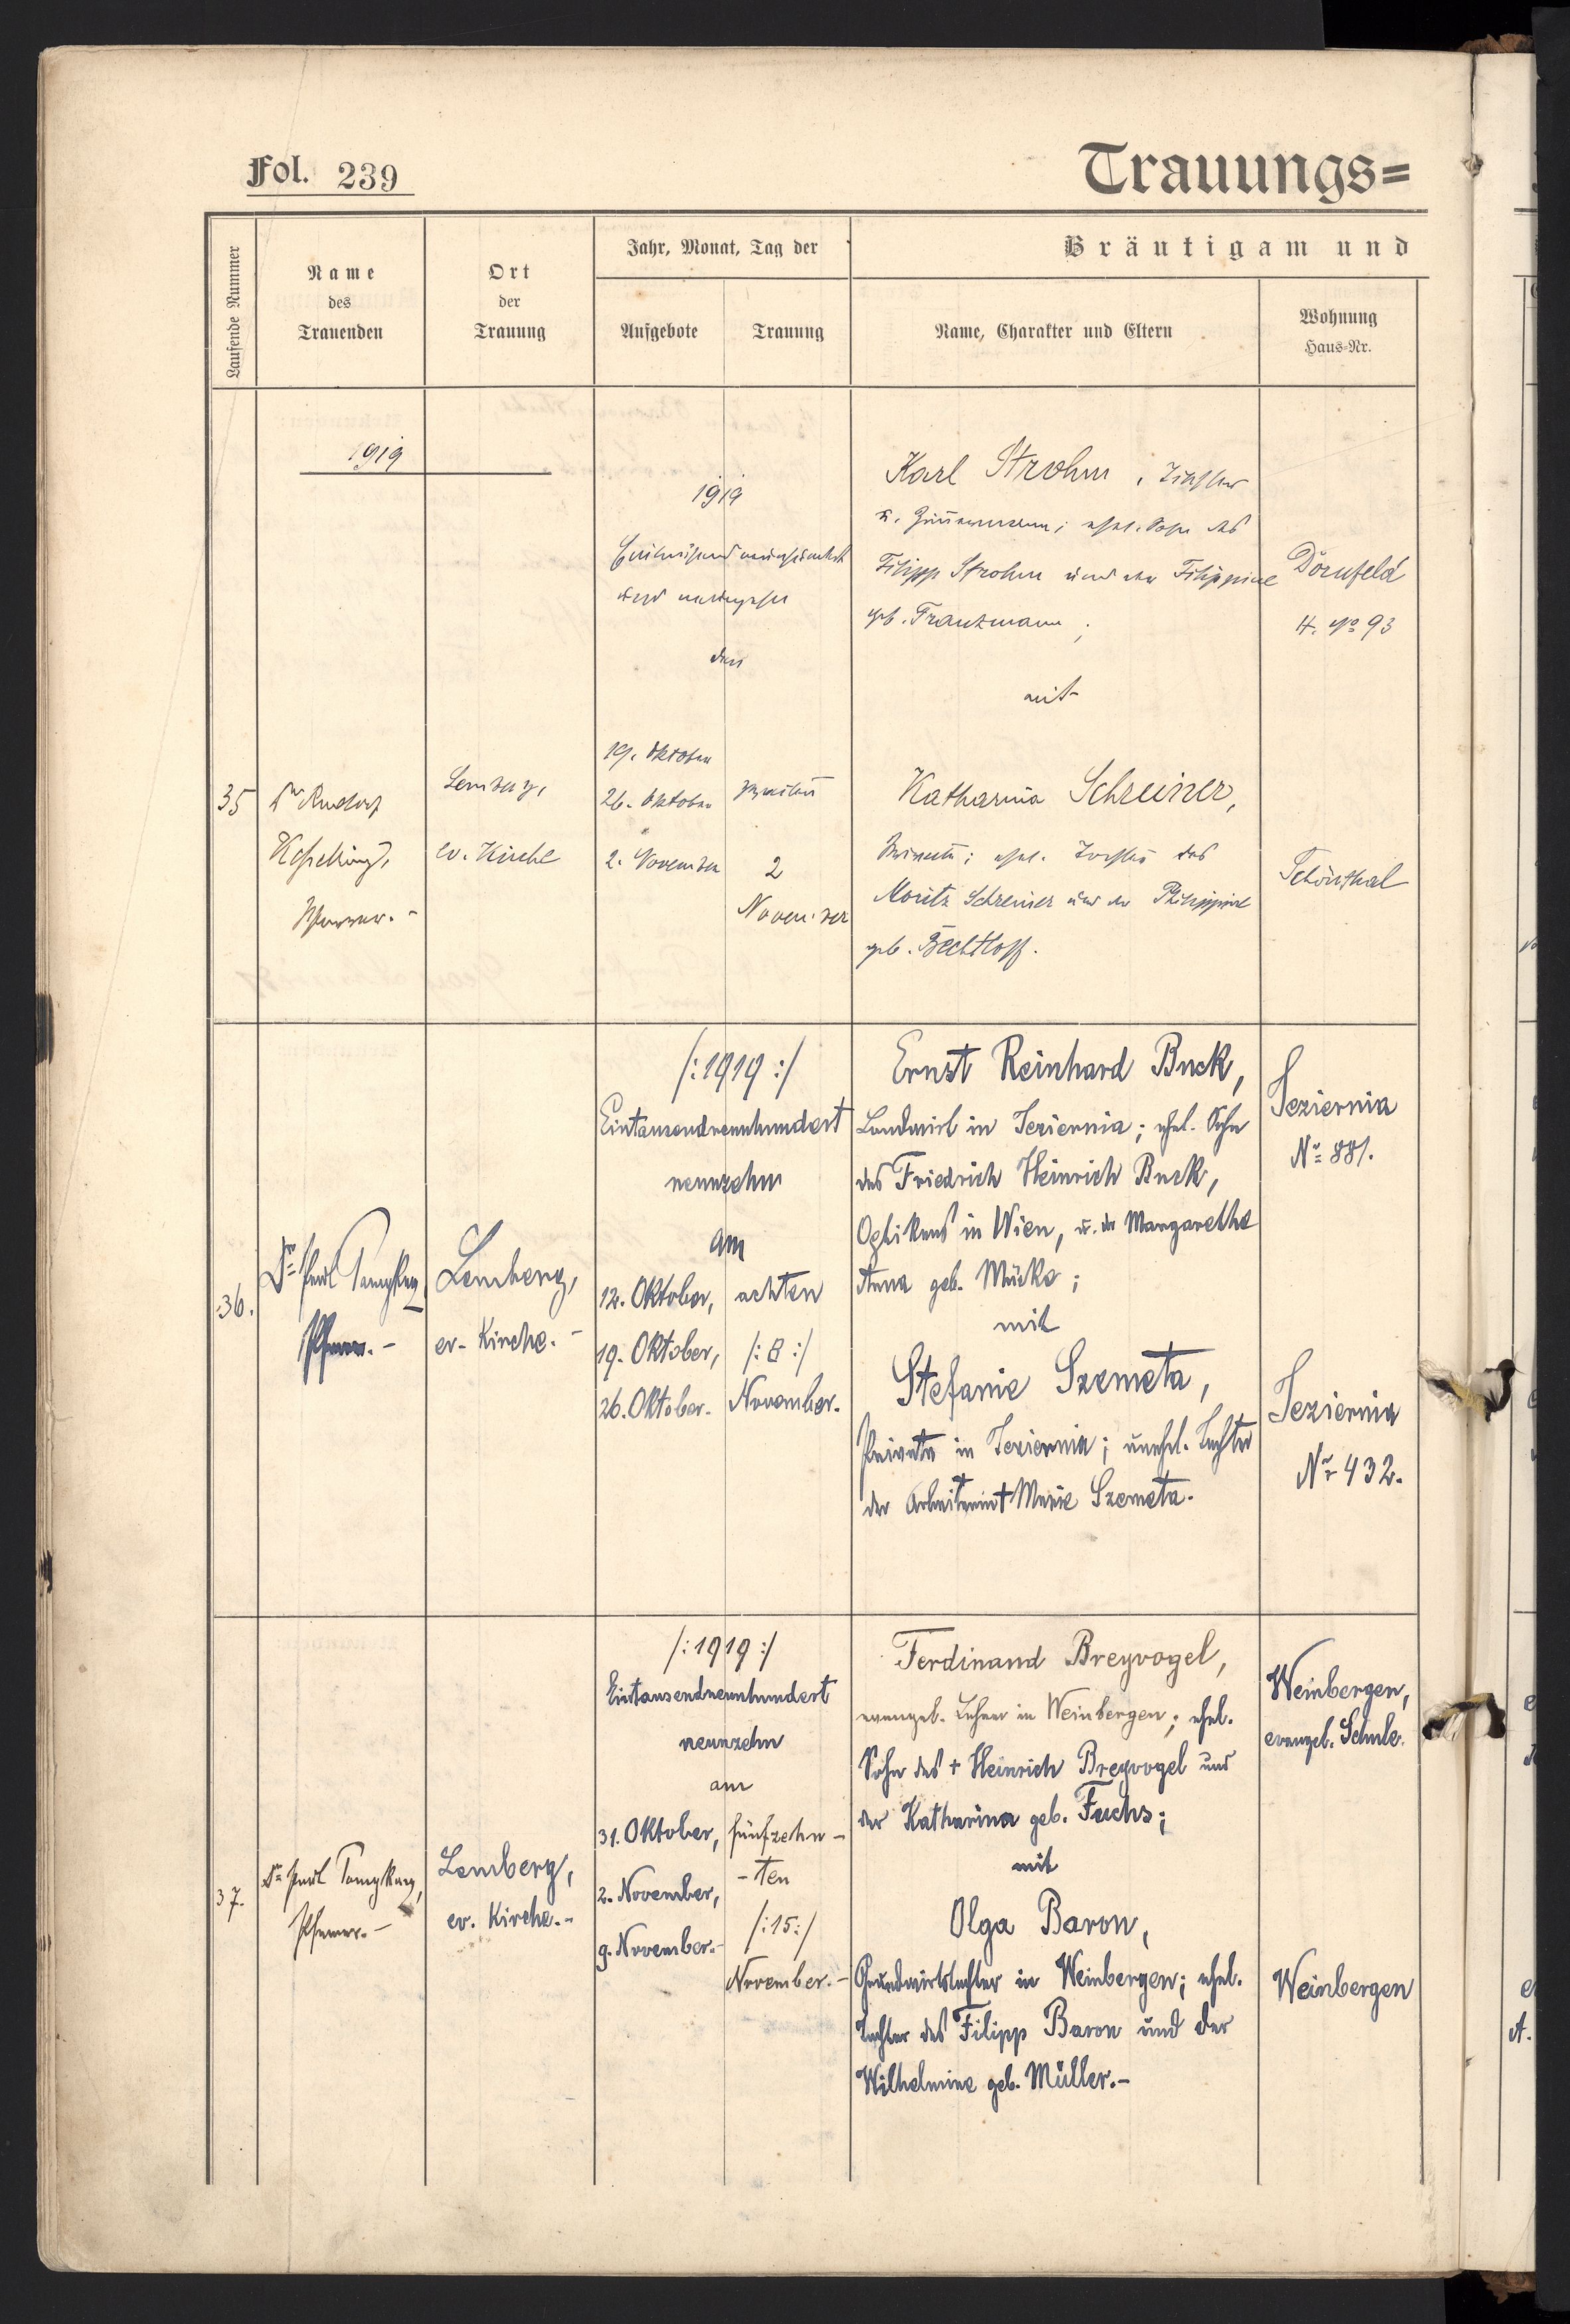 Fol. 239
Trauungs=
Laufende Nummer
Name
des
Trauenden
Ort
der
Trauung
Jahr, Monat, Tag der
Aufgebote
Trauung
Bräutigam und
Name, Charakter und Eltern
Wohnung
Haus-Nr.
1919
35
Dr Rudolf
Kesselring,
Pfarrer.-
Lemberg,
ev. Kirche
1919
den
19. Oktober
26. Oktober
2. November
zweiten
2
November
Karl Strohm,
u. Zimmermann; ehel. Sohn des
Filipp Strohm und der Filippine
geb. Franzmann;
mit
Katharina Schreiner,
Private; ehel. Tochter des
Moritz Schreiner und der Philippine
geb. Bechtloff.
Dornfeld
H. No 93
Schönthal
36.
Dr Paul
Pfarrer.-
Lemberg,
ev. Kirche.-
/:1919:/
Eintausendneunhundert
neunzehn
am
12. Oktober,
19. Oktober,
26. Oktober.
achten
/:8:/
November.
Ernst Reinhard Buck,
Landwirt in Jeziernia; ehel. Sohn
des Friedrich Heinrich Buck,
Optikers in Wien, u. der Margarethe
Anna geb. Mücke;
mit
Stefanie Szemeta,
Private in Jeziernia; unehel. Tochter
der Arbeiterin + Marie Szemeta.
Jeziernia
No 881.
Jeziernia
No 432.
37.
Dr Paul
Pfarrer.-
Lemberg,
ev. Kirche.-
/:1919:/
Eintausendneunhundert
neunzehn
am
31. Oktober,
2. November,
9. November.-
fünfzehn-
-ten
/:15:/
November.-
Ferdinand Breyvogel,
evangel. Lehrer in Weinbergen; ehel.
Sohn des + Heinrich Breyvogel und
der Katharina geb. Fuchs;
mit
Olga Baron,
Grundwirtstochter in Weinbergen; ehel.
Tochter des Filipp Baron und der
Wilhelmine geb. Müller.-
Weinbergen,
evangel. Schule.
Weinbergen